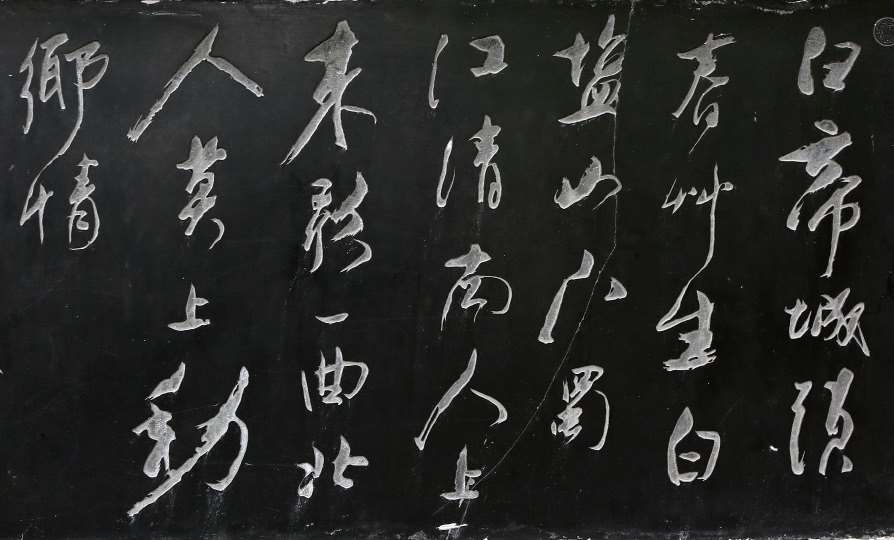 白帝城頭
春艸生白
塩山下蜀
江清南人上
来歌一曲北
人莫上動
鄉情